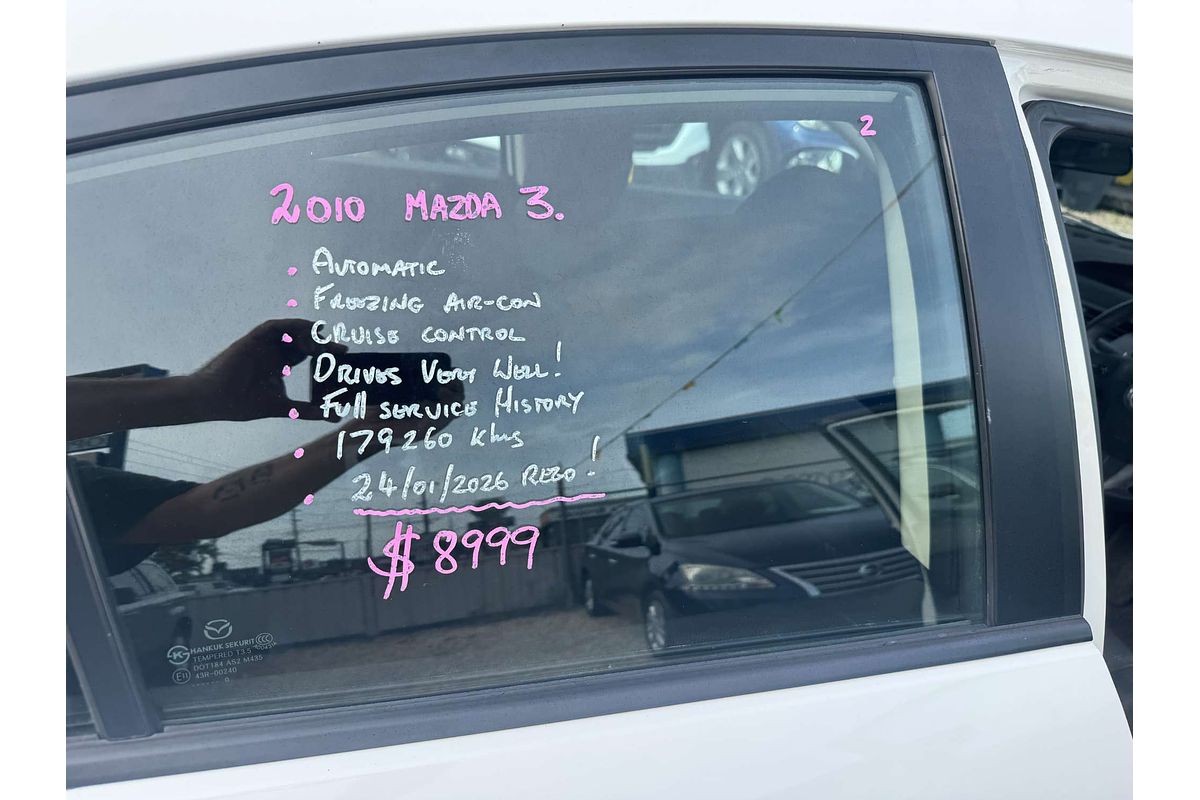 2
2010 MAZDA 3.
• AUTOMATIC
• FREEZING AIR-CON
• CRUISE CONTROL
• DRIVES VERY WELL!
• FULL SERVICE HISTORY
• 179260 kms
• 24/01/2026 REGO!
$8999
HANKUK SEKURIT
TEMPERED T3.5
DOT184 AS2 M435
E11 43R-00240